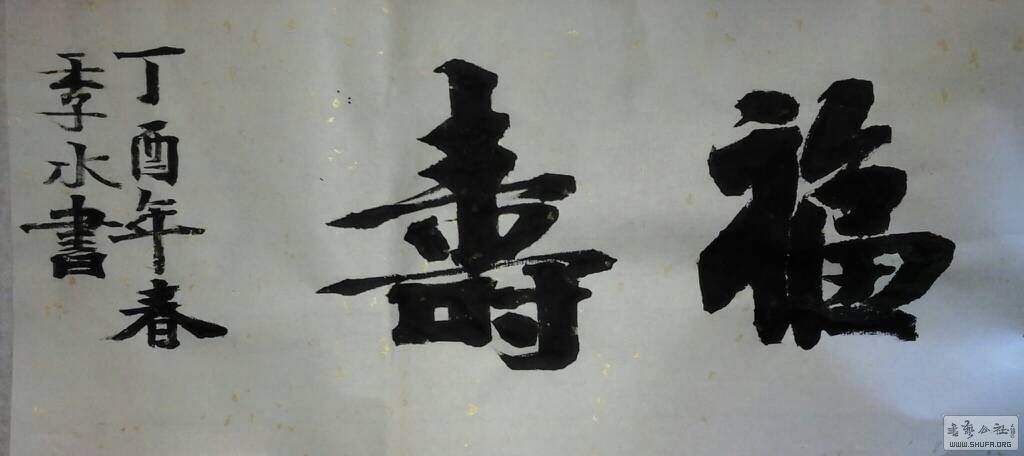 福壽
丁酉年春
季水書
書藝公社
WWW.SHUFA.ORG